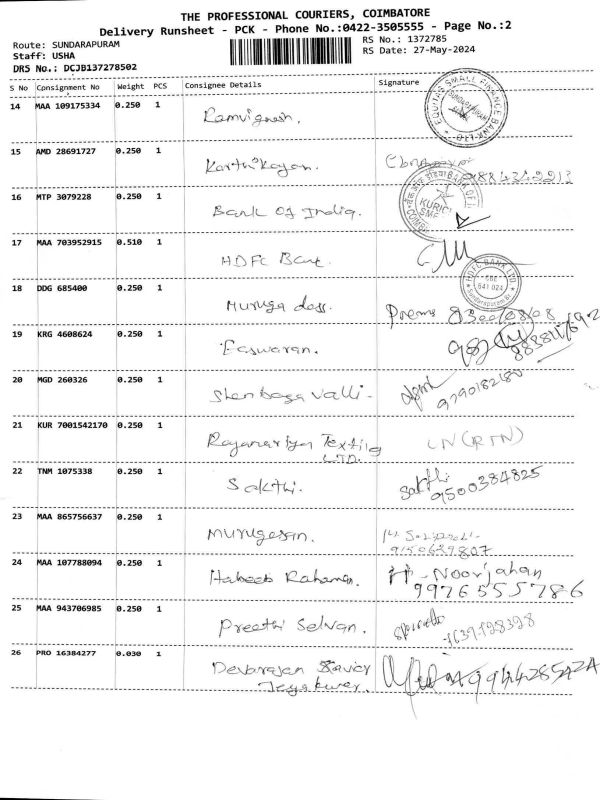 THE PROFESSIONAL COURIERS, COIMBATORE
Delivery Runsheet - PCK - Phone No.:0422-3505555 - Page No.:2
Route: SUNDARAPURAM
RS No.: 1372785
Staff: USHA
RS Date: 27-May-2024
DRS No.: DCJB137278502
S No Consignment No Weight PCS Consignee Details Signature
14 MAA 109175334 0.250 1 Ramvignesh.
EQUITAS SMALL FINANCE BANK LTD
15 AMD 28691727 0.250 1 Karthikayan.
16 MTP 3079228 0.250 1 Bank of India.
KURICHI
17 MAA 703952915 0.510 1 HDFC Bank.
HDFC BANK LTD.
641 024
Sundarapuram Br
18 DDG 685400 0.250 1 Muruga doss. Prema
19 KRG 4608624 0.250 1 Easwaran.
20 MGD 260326 0.250 1 Shenbaga valli. 9790182180
21 KUR 7001542170 0.250 1 Rajanariya Textile LN(RTN)
LTD.
22 TNM 1075338 0.250 1 Sakthi. Sakthi
9500384825
23 MAA 865756637 0.250 1 Murugesan.
9150629807
24 MAA 107788094 0.250 1 Habeeb Rahaman. H-Noorjahan
9976555786
25 MAA 943706985 0.250 1 Preethi Selvan.
26 PRO 16384277 0.030 1 Devarajan Savier
Jeyakumar.